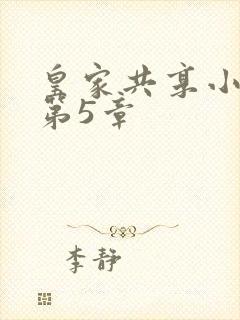 皇家共享小
第5章
李静